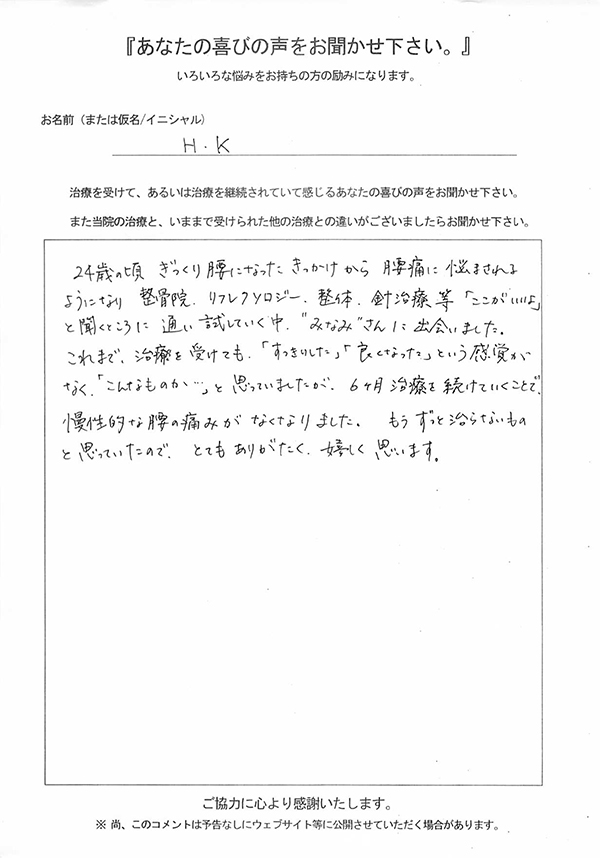 『あなたの喜びの声をお聞かせ下さい。』
いろいろな悩みをお持ちの方の励みになります。
お名前（または仮名/イニシャル）
H.K
治療を受けて、あるいは治療を継続されていて感じるあなたの喜びの声をお聞かせ下さい。
また当院の治療と、いままで受けられた他の治療との違いがございましたらお聞かせ下さい。
24歳の頃 ぎっくり腰になったきっかけから 腰痛に悩まされる
ようになり 整骨院、リフレクソロジー、整体、針治療 等「ここがいいよ」
と聞くところに 通い 試していく中、"みなみ"さんに 出会いました。
これまで、治療を受けても、「すっきりした」「良くなった」という 感覚が
なく、「こんなものか…」と思っていましたが、6ヶ月 治療を 続けていくことで、
慢性的な 腰の痛みが なくなりました。 もう ずっと治らないもの
と思っていたので、とても ありがたく、嬉しく 思います。
ご協力に心より感謝いたします。
※ 尚、このコメントは予告なしにウェブサイト等に公開させていただく場合があります。